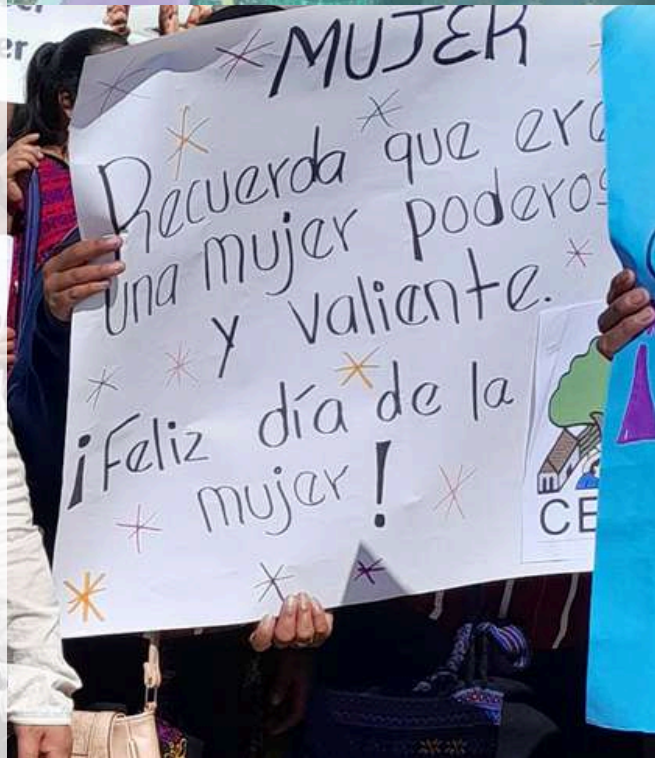 er
MUJER
Recuerda que
una mujer
y valiente.
¡Feliz día de la
mujer!
CE